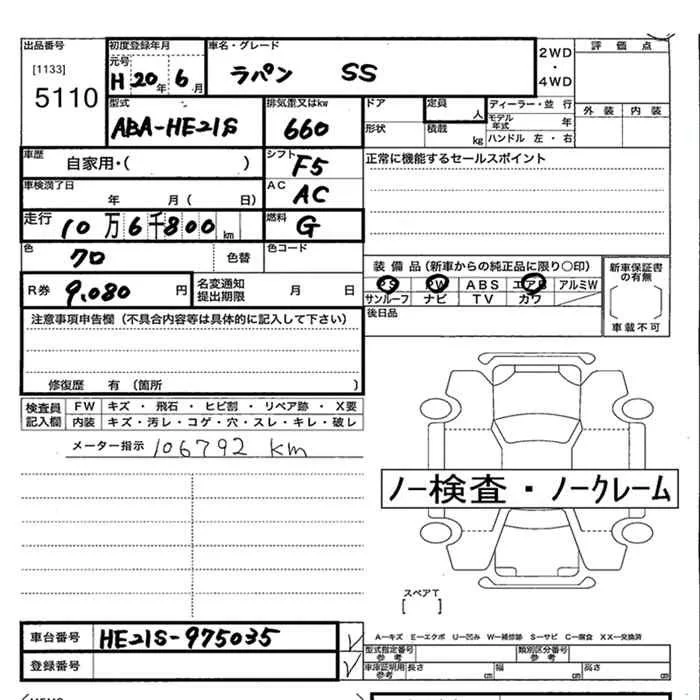 出品番号 初度登録年月 車名・グレード 評価点
[1133] 元号 2WD
5110 H 20年 6月 ラパン SS ・
4WD
型式 排気歪又はkw ドア 定員 人 ディーラー・並行 外装 内装
ABA-HE21S 660 形状 積載 kg モデル年式 年
ハンドル 左・右
車歴 自家用・( ) シフト F5 正常に機能するセールスポイント
車検満了日 年 月( 日) AC AC
走行 10万6千800km 燃料 G
色 70 色替 色コード
装備品(新車からの純正品に限り○印) 新車保証書の有無
R券 9,080円 名変通知提出期限 月 日 PS PW ABS エアB アルミW
サンルーフ ナビ TV カワ
注意事項申告欄(不具合内容等は具体的に記入して下さい) 後日品 車載不可
修復歴 有(箇所 )
検査員記入欄 FW キズ・飛石・ヒビ割・リペア跡・X要
内装 キズ・汚レ・コゲ・穴・スレ・キレ・破レ
メーター指示 106792 km
ノー検査・ノークレーム
スペアT
[ ]
車台番号 HE21S-975035 A−キズ E−エクボ U−凹み W−補修跡 S−サビ C−腐食 XX−交換済
登録番号 型式指定番号 参考 類別区分番号 参考
車庫証明用 参考 長さ cm 幅 cm 高さ cm